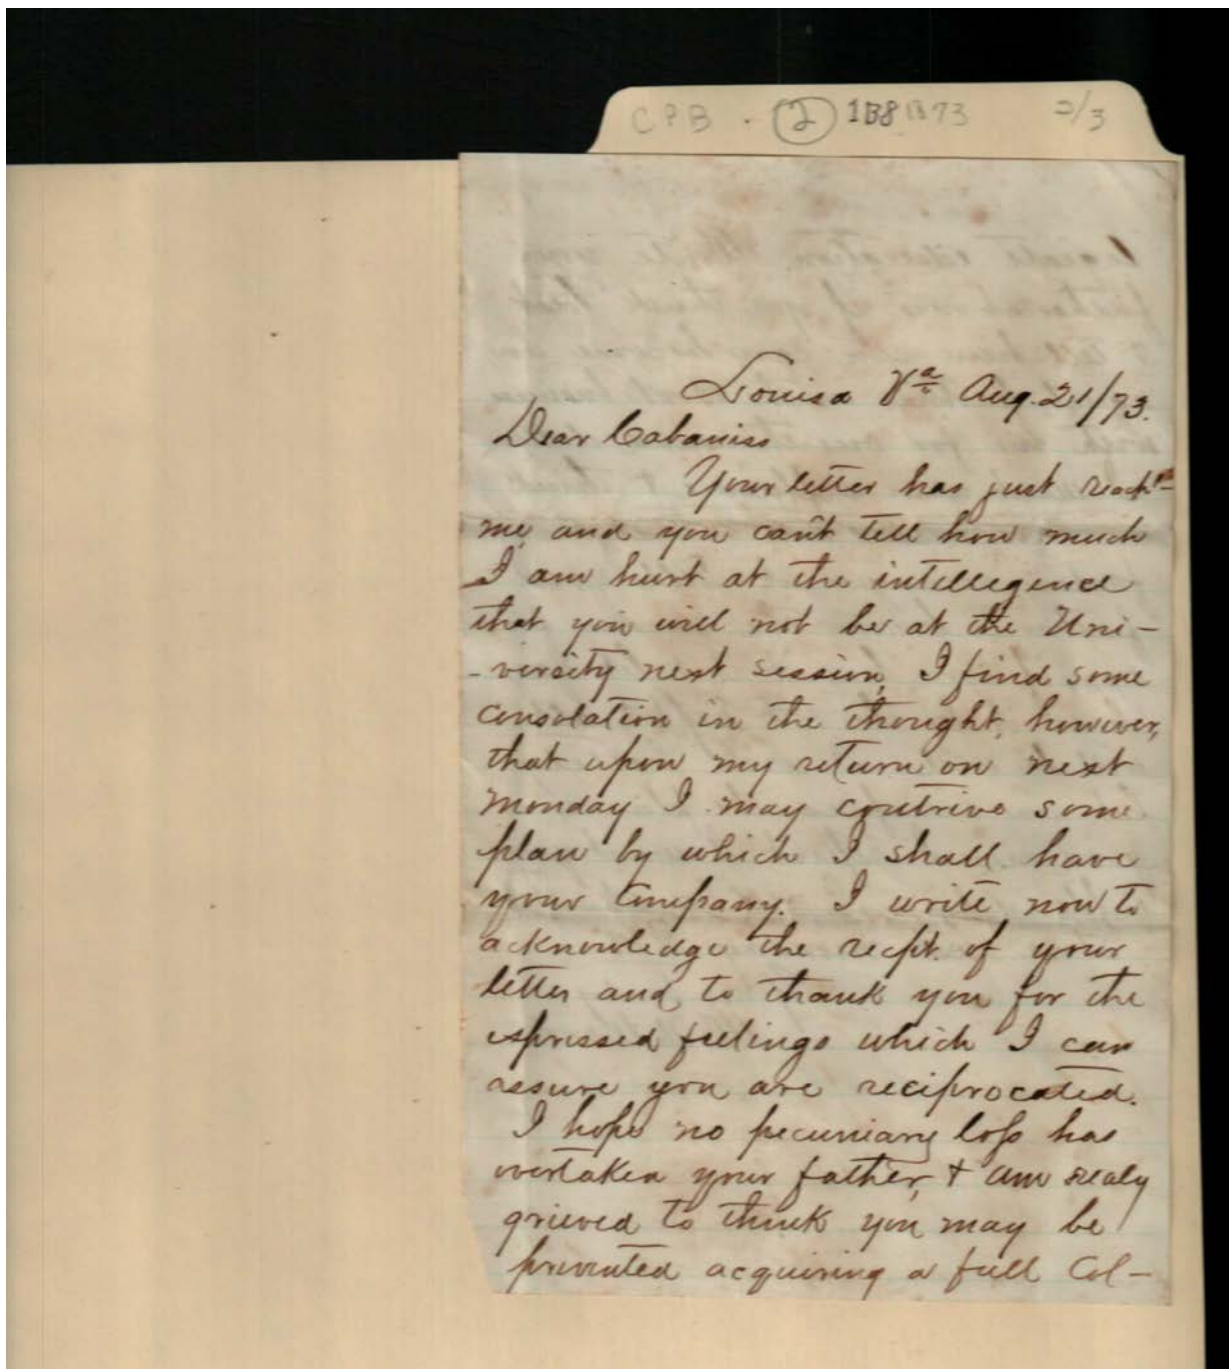 CPB . 2 1B8 1873 2/3
Louisa Va Aug. 21/73.
Dear Cabaniss
Your letter has just reach
me and you can't tell how much
I am hurt at the intellegence
that you will not be at the Uni-
-versity next session, I find some
consolation in the thought, however,
that upon my return on next
monday I may contrive some
plan by which I shall have
your company. I write now to
acknowledge the recpt. of your
letter and to thank you for the
expressed feelings which I can
assure you are reciprocated.
I hope no pecuniary loss has
overtaken your father, + am realy
grieved to think you may be
prevented acquiring a full Col-